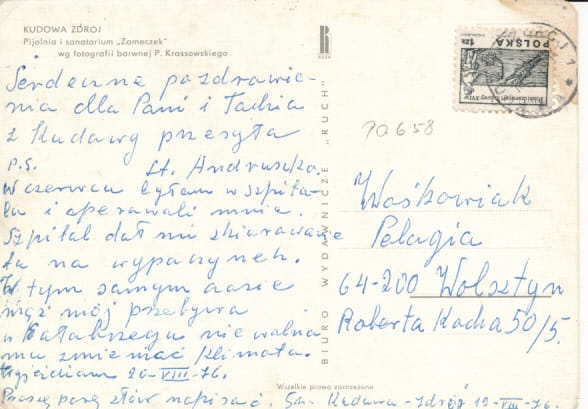 KUDOWA ZDRÓJ
Pijalnia i sanatorium „Zameczek"
wg fotografii barwnej P. Krassowskiego
Serdeczne pozdrawie-
nia dla Pani i Tadzia
z Kudowy przesyła
P.S. St. Andruszko.
W czerwcu byłam w szpita-
lu i operowali mnie.
Szpital dał mi skierowanie
tu na wypoczynek.
W tym samym czasie
mąż mój przebywa
w Kołobrzegu nie wolno
mu zmieniać klimatu.
Wyjeżdżam 20-VIII-76.
Proszę parę słów napisać. Kudowa-Zdrój 12-VIII-76.
BIURO WYDAWNICZE „RUCH"
RUCH
POLSKA
1 ZŁ
70658
Wośkowiak
Pelagia
64-200 Wolsztyn
Roberta Kocha 50/5.
Wszelkie prawa zastrzeżone